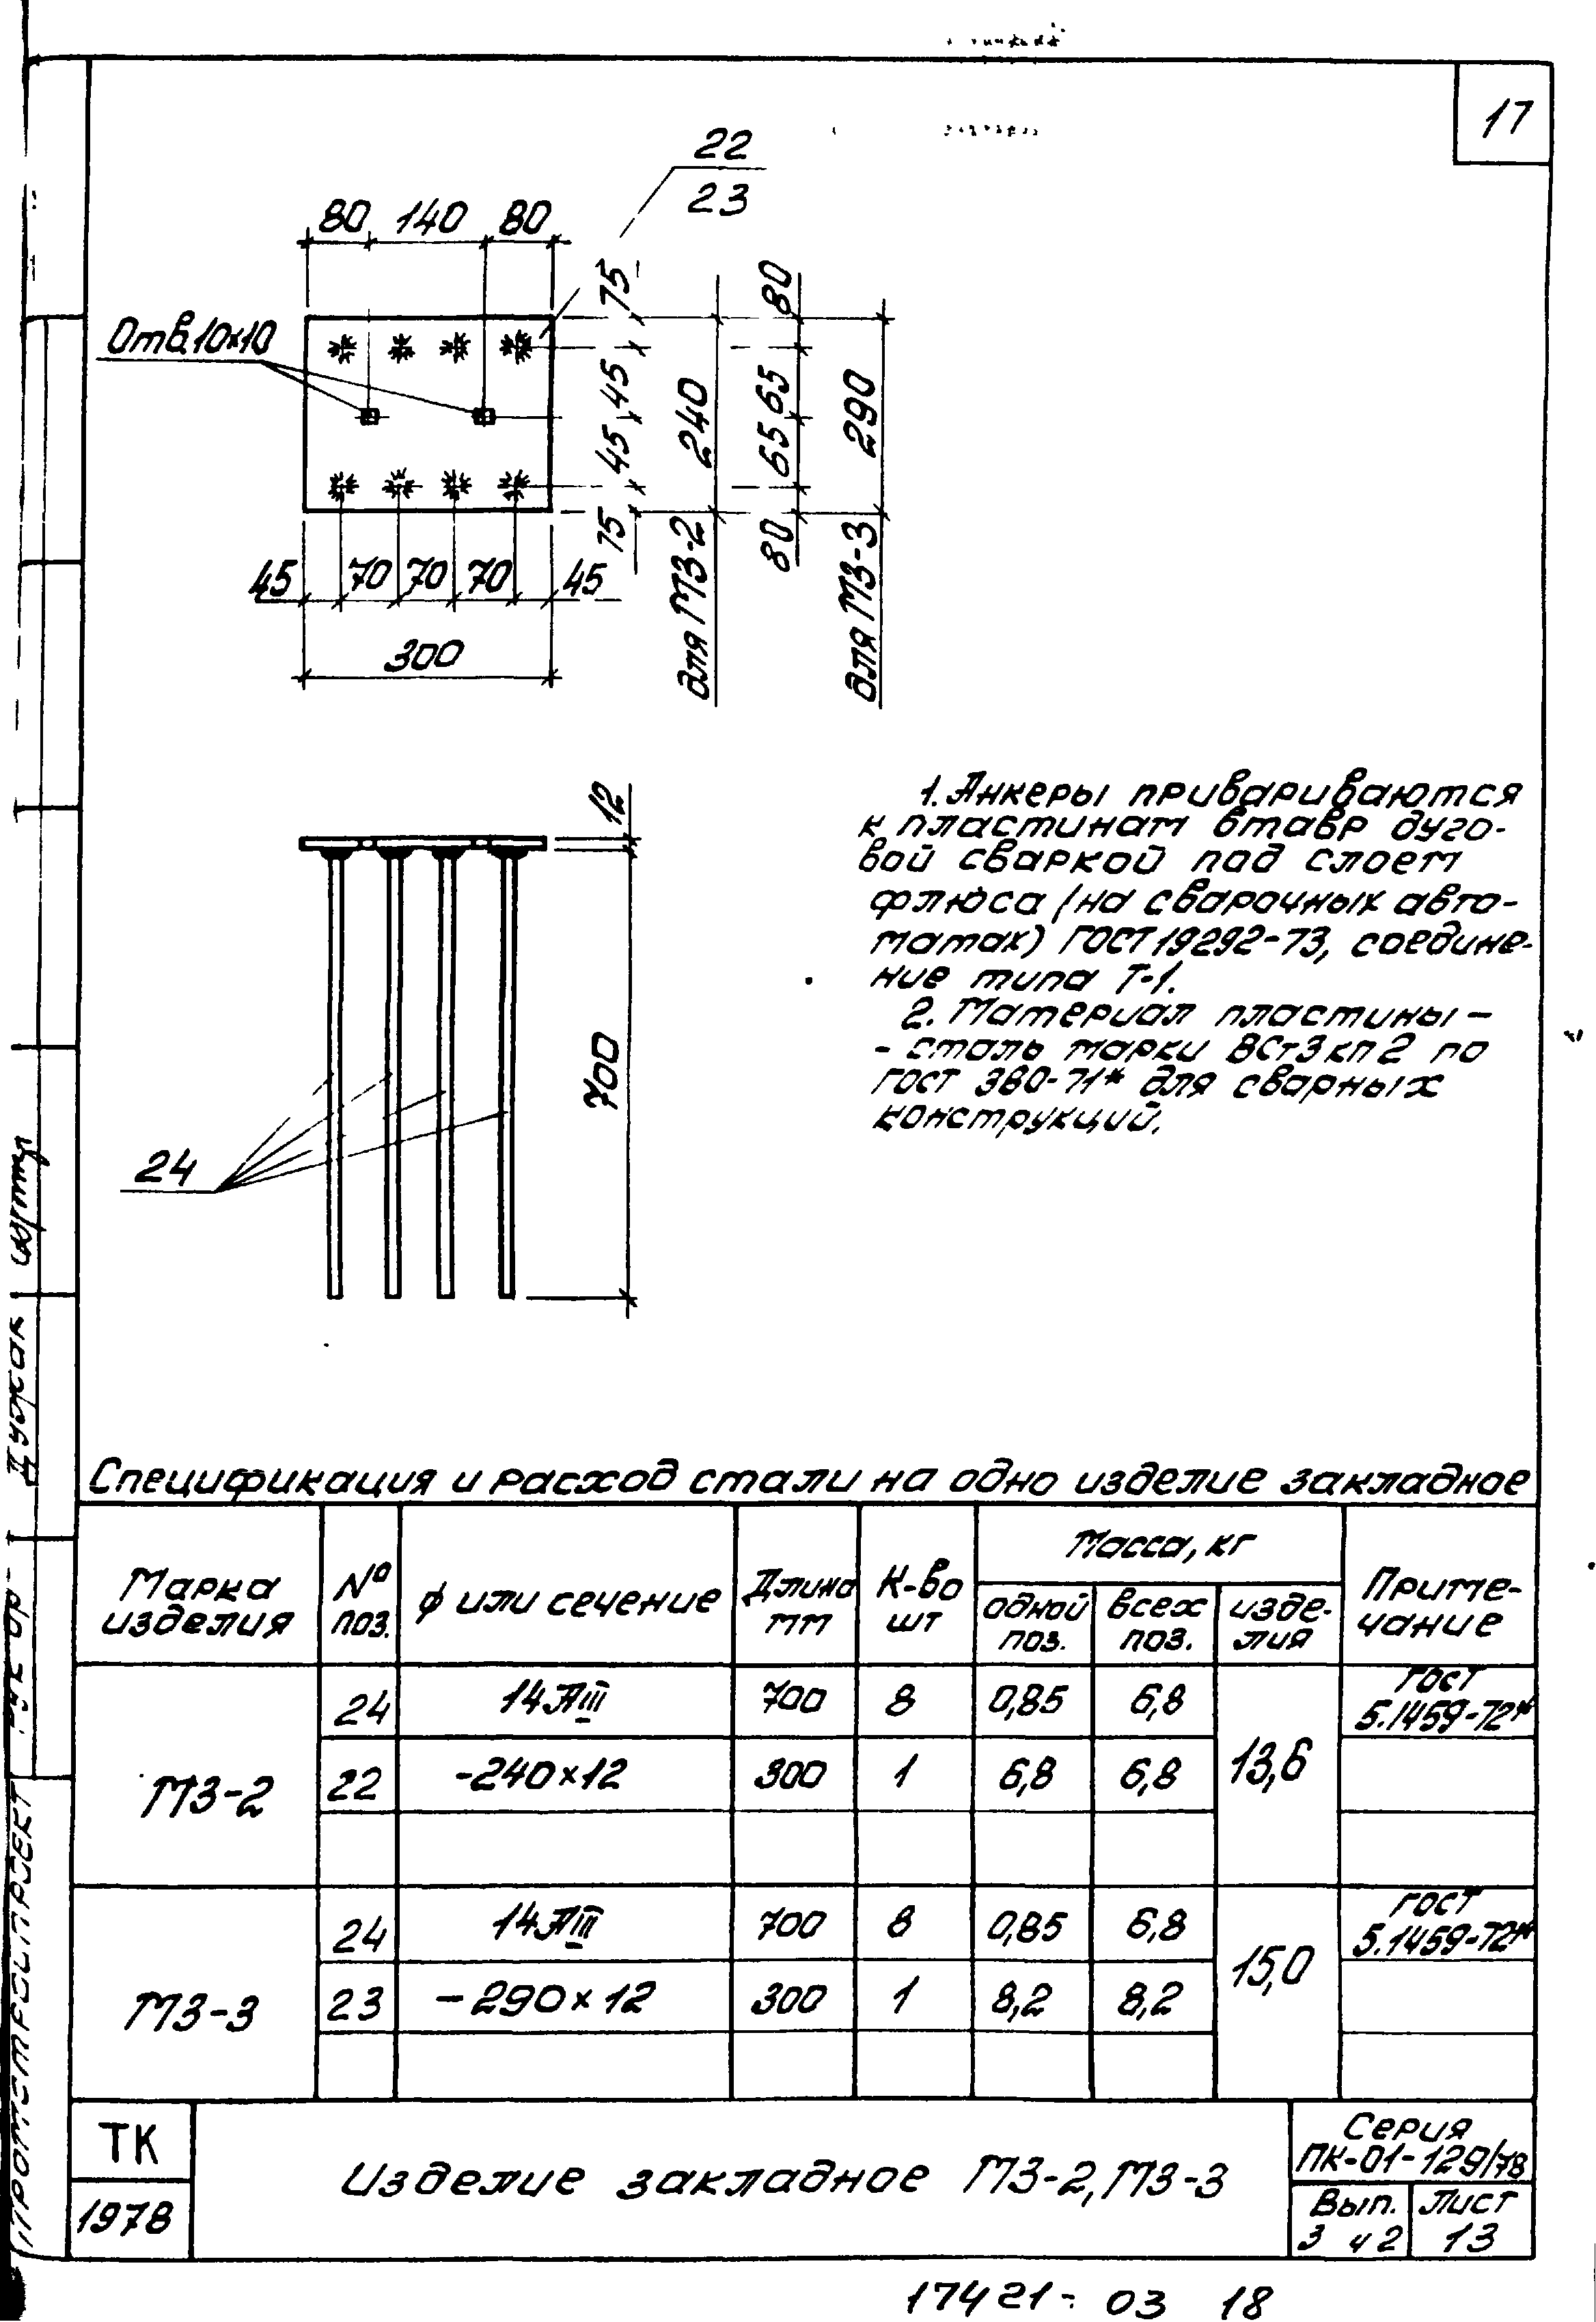 17
22
23
80 140 80
Отв.10×10
75
45
45
75
240
для МЗ-2
80
65
65
80
290
для МЗ-3
45 70 70 70 45
300
12
700
24
1. Анкеры привариваются
к пластинам втавр дуго-
вой сваркой под слоем
флюса (на сварочных авто-
матах) ГОСТ 19292-73, соедине-
ние типа Т-1.
2. Материал пластины -
- сталь марки ВСт3кп2 по
ГОСТ 380-71* для сварных
конструкций.
Спецификация и расход стали на одно изделие закладное
Марка изделия | № поз. | ф или сечение | Длина мм | К-во шт | Масса, кг | одной поз. | всех поз. | изде-лия | Приме-чание
МЗ-2 | 24 | 14 АIII | 700 | 8 | 0,85 | 6,8 | 13,6 | ГОСТ 5.1459-72*
22 | -240×12 | 300 | 1 | 6,8 | 6,8
МЗ-3 | 24 | 14 АIII | 700 | 8 | 0,85 | 6,8 | 15,0 | ГОСТ 5.1459-72*
23 | -290×12 | 300 | 1 | 8,2 | 8,2
ТК
1978
Изделие закладное МЗ-2, МЗ-3
Серия
ПК-01-129/78
Вып. Лист
3 ч 2 13
17421-03 18